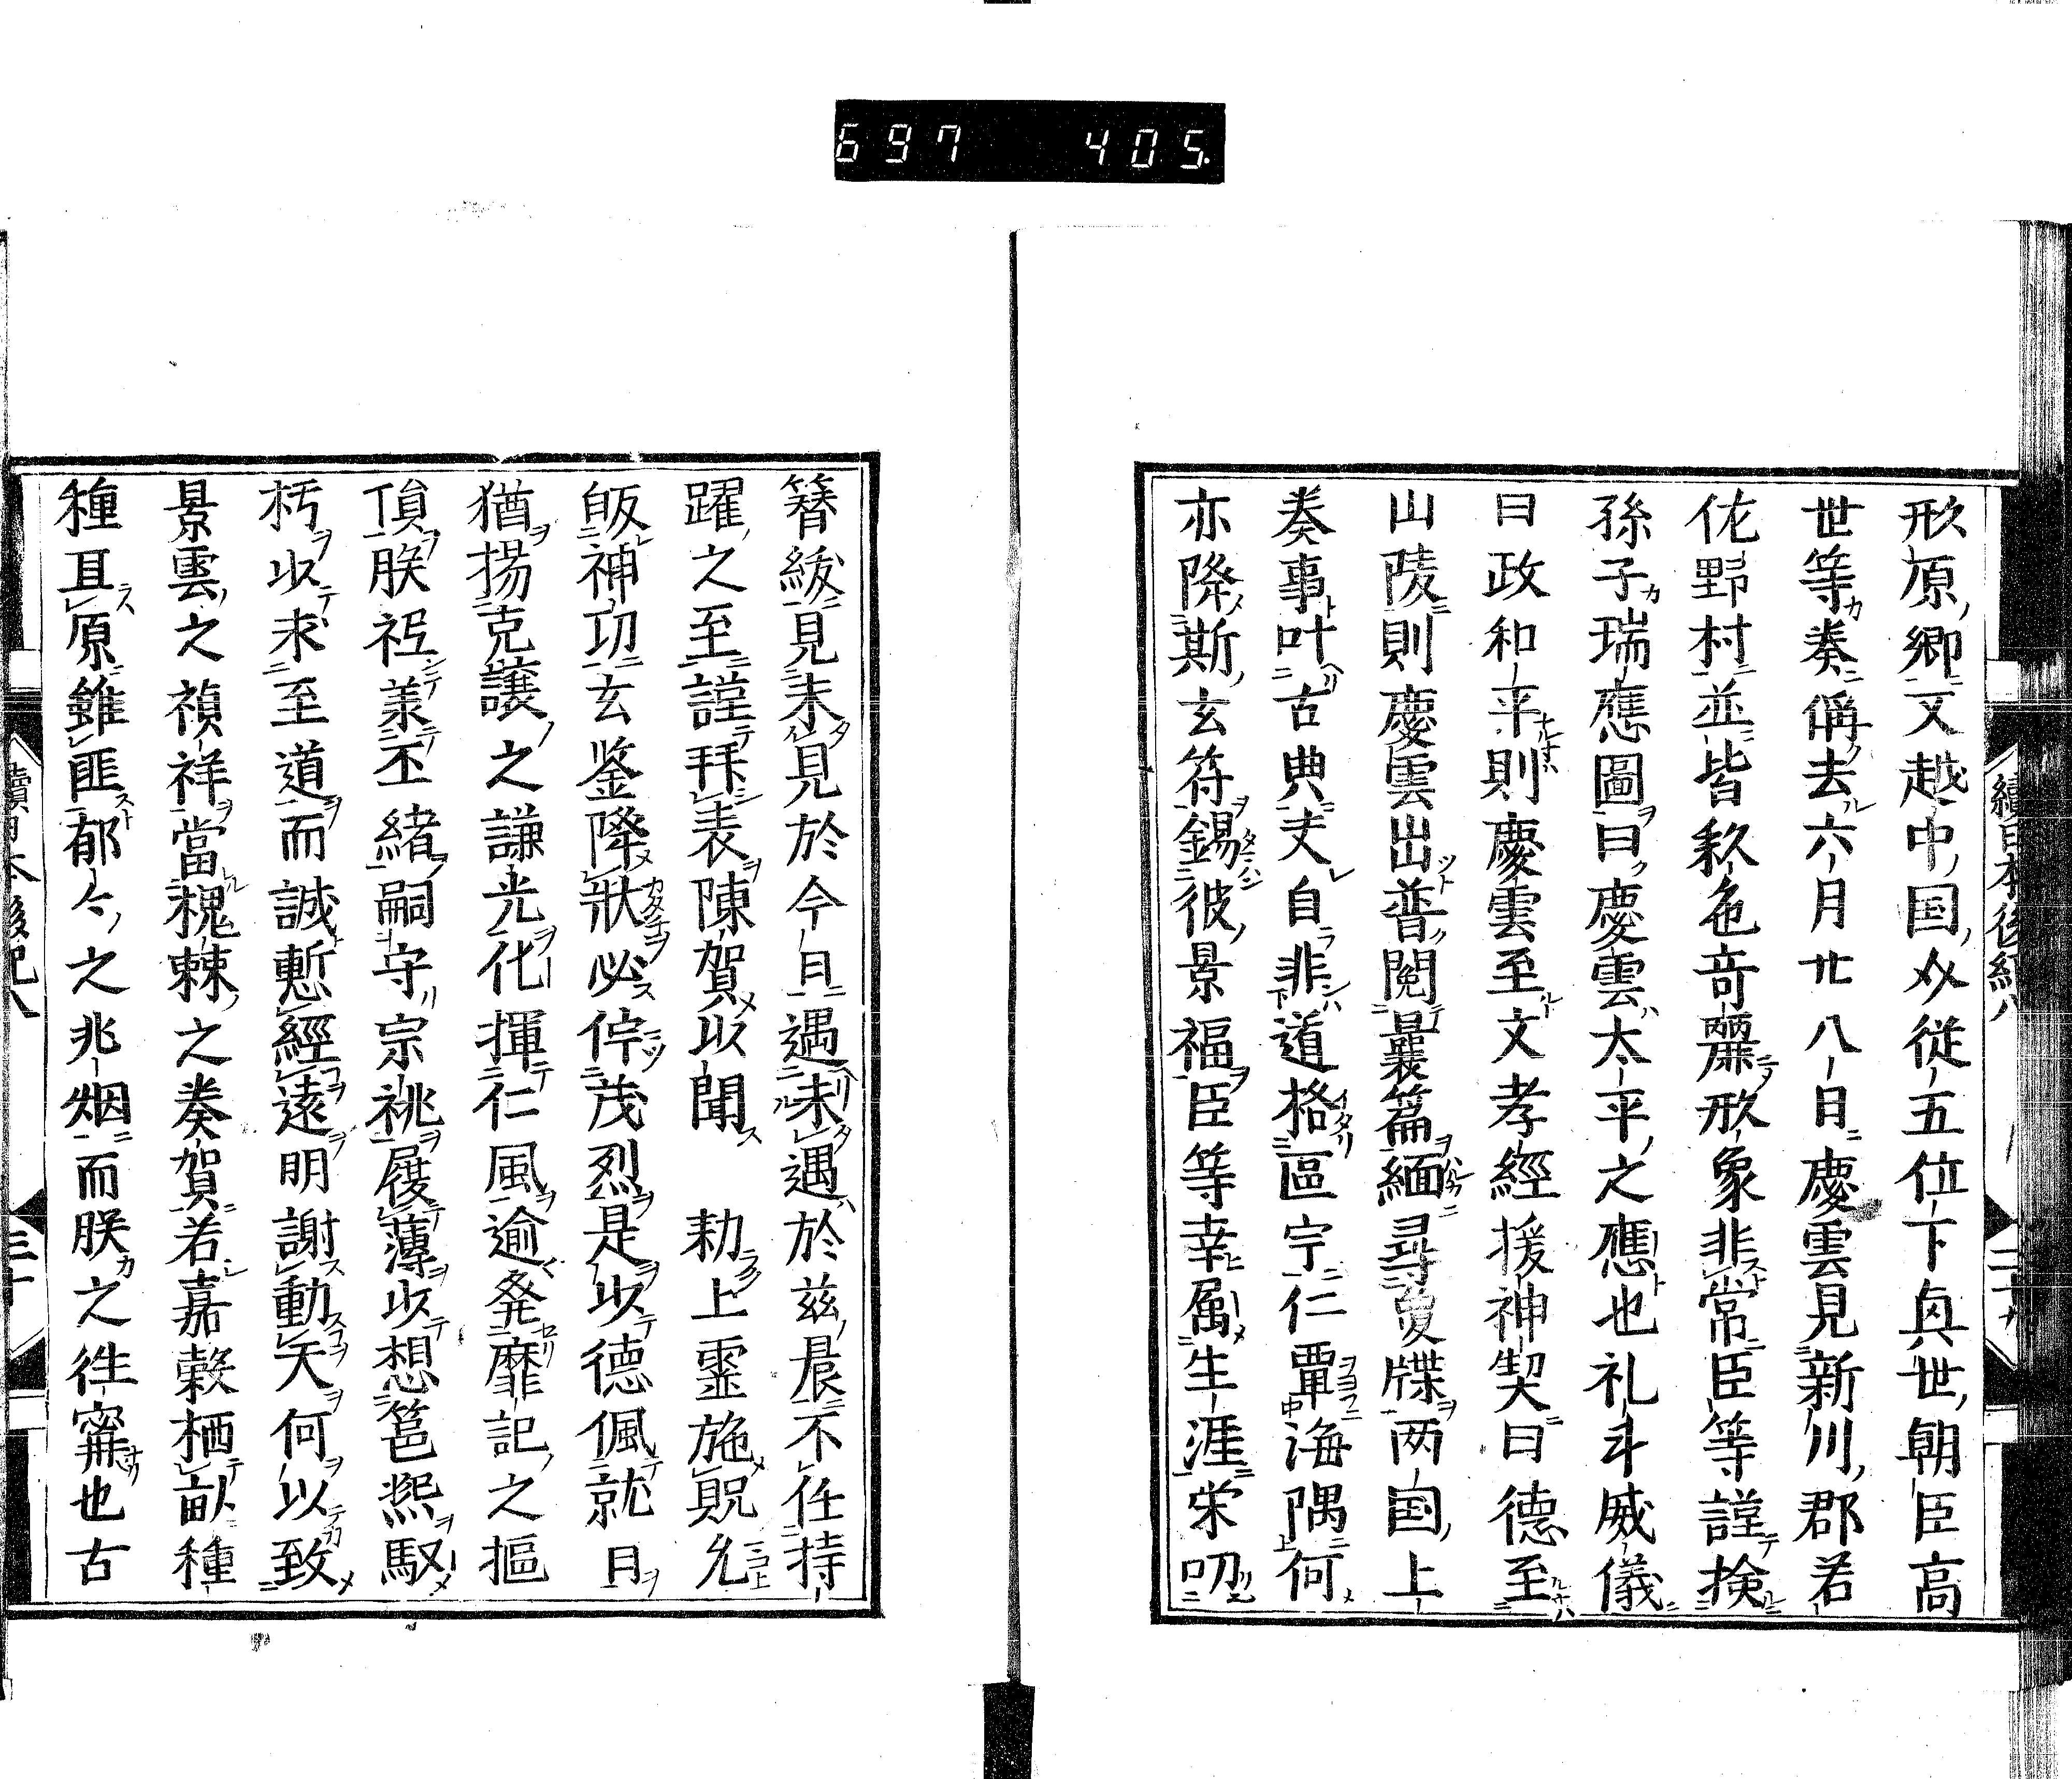 697 405.
形原郷又越中国介従五位下興世朝臣高
世等奏偁去六月廿八日慶雲見新川郡若
佐野村並皆五色奇麗形象非常臣等謹検
孫子瑞應圖曰慶雲太平之應也礼斗威儀
曰政和平則慶雲至文孝經援神契曰德至
山陵則慶雲出普閲曩篇緬尋夐牒两国上
奏事叶古典夫自非道格區宇仁覃海隅何
亦降斯玄符錫彼景福臣等幸属生涯栄叨
簪紱見未見於今日遇未遇於兹晨不任持
躍之至謹拜表陳賀以聞 勅上靈施貺允
皈神功玄鉴降狀必侔茂烈是以德偑就日
猶揚克讓之謙光化揮仁風逾発靡記之摳
頂朕祗羕丕緒嗣守宗祧履薄以想菖煕馭
朽以求至道而誠慙經遠明謝動天何以致
景雲之禎祥當槐棘之奏賀若嘉穀栖畝種
種耳原雖匪郁々之兆烟而朕之徃寗也古
續日本後紀八
二十九
三十